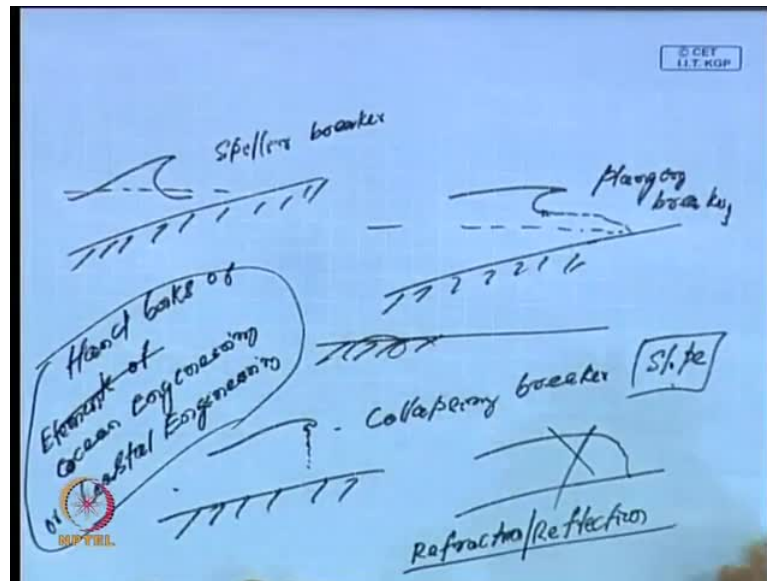 © CET
I.I.T. KGP
Spiller breaker
Plunging
breaker
Hand books of
Element of
Ocean Engineering
or Coastal Engineering
Collapsing breaker
Slope
Refraction/Reflection
NPTEL